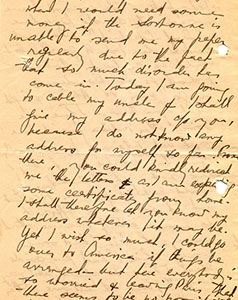 that I would need some
money if the Sorbonne is
unable to send me my papers
regularly due to the fact
that so much disorder has
come in. Today I am going
to cable my uncle & I shall
give my address c/o you,
because I do not know any
address for myself so far. From
there, you could kindly redirect
me the letters & as I am expecting
some certificate from home.
I shall therefore let you know my
address wherever it may be.
Yet I wish so much, I could go
over to America if things be
arranged - but here everybody is
so worried & leaving Paris, that
there seems to be no